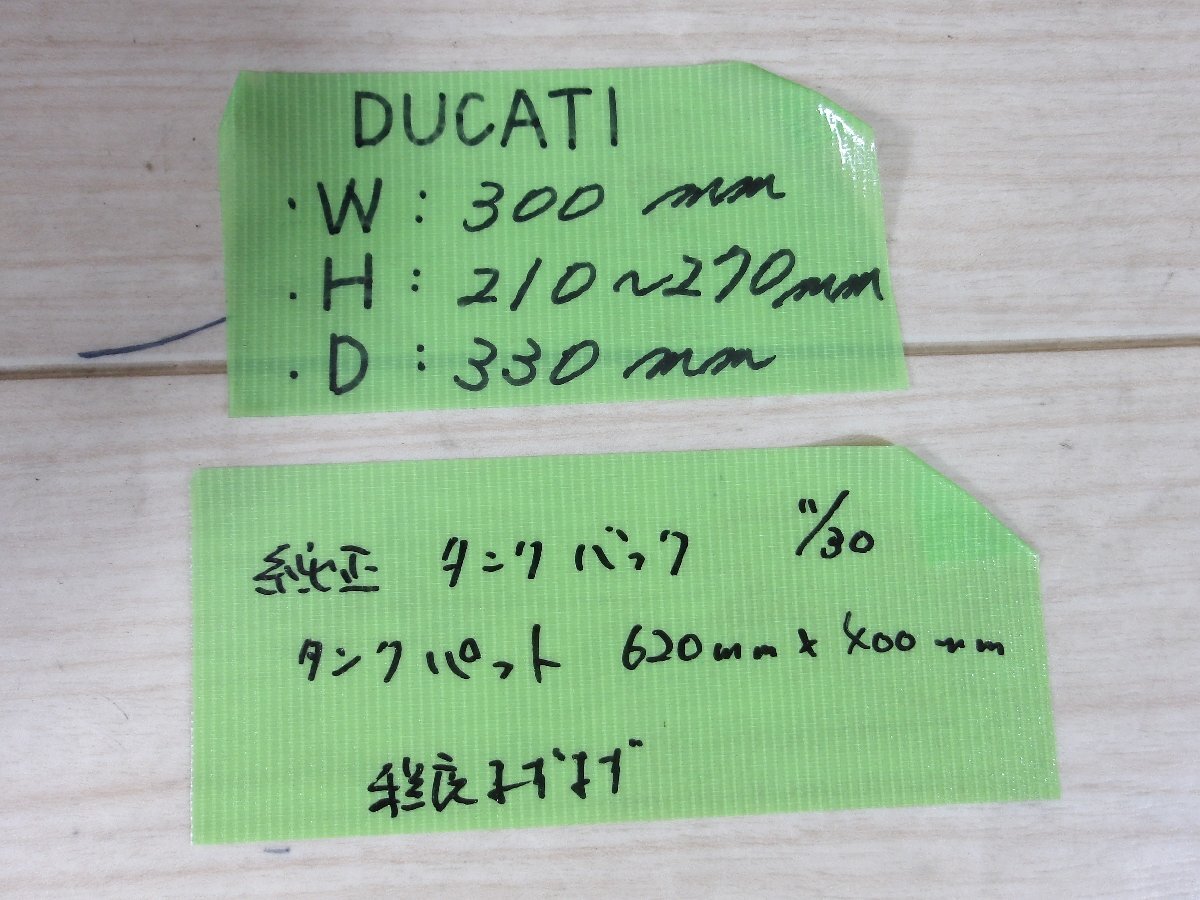 DUCATI
・W : 300 mm
・H : 210〜270mm
・D : 330 mm
純正 タンクバック 11/30
タンクパット 620mm x 400mm
程度まずまず